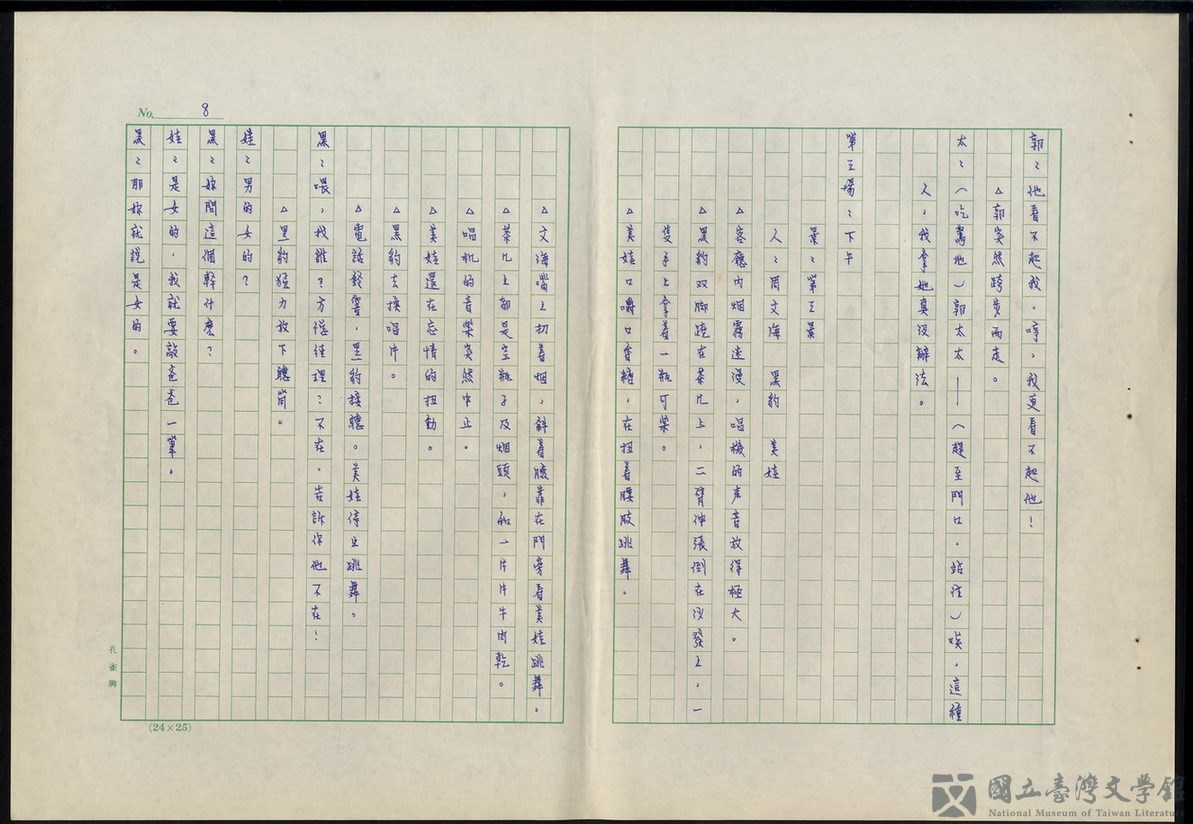 郭：他看不起我，哼，我更看不起他！
△郭突然跨步而走。
太：（吃驚地）郭太太——（趕至門口，站住）唉，這種
人，我拿她真沒辦法。
第三場：下午
景：第三景
人：周文海 黑豹 美娃
△客廳內烟霧迷漫，唱機的声音放得極大。
△黑豹双脚蹺在茶几上，二臂伸張倒在沙發上，一
隻手上拿着一瓶可樂。
△美娃口嚼口香糖，在扭着腰肢跳舞。
No. 8
△文海嘴上扨着烟，斜着腰靠在門旁看美娃跳舞。
△茶几上都是空瓶子及烟頭，和一片片牛肉乾。
△唱机的音樂突然中止。
△美娃還在忘情的扭動。
△黑豹去換唱片。
△電話鈴響，黑豹接聽。美娃停止跳舞。
黑：喂，找誰？方經理？不在，告訴你他不在！
△黑豹猛力放下聽筒。
娃：男的女的？
黑：妳問這個幹什麽？
娃：是女的，我就要敲爸爸一筆。
黑：那妳就說是女的。
孔雀牌
(24×25)
國立臺灣文學館
National Museum of Taiwan Literature